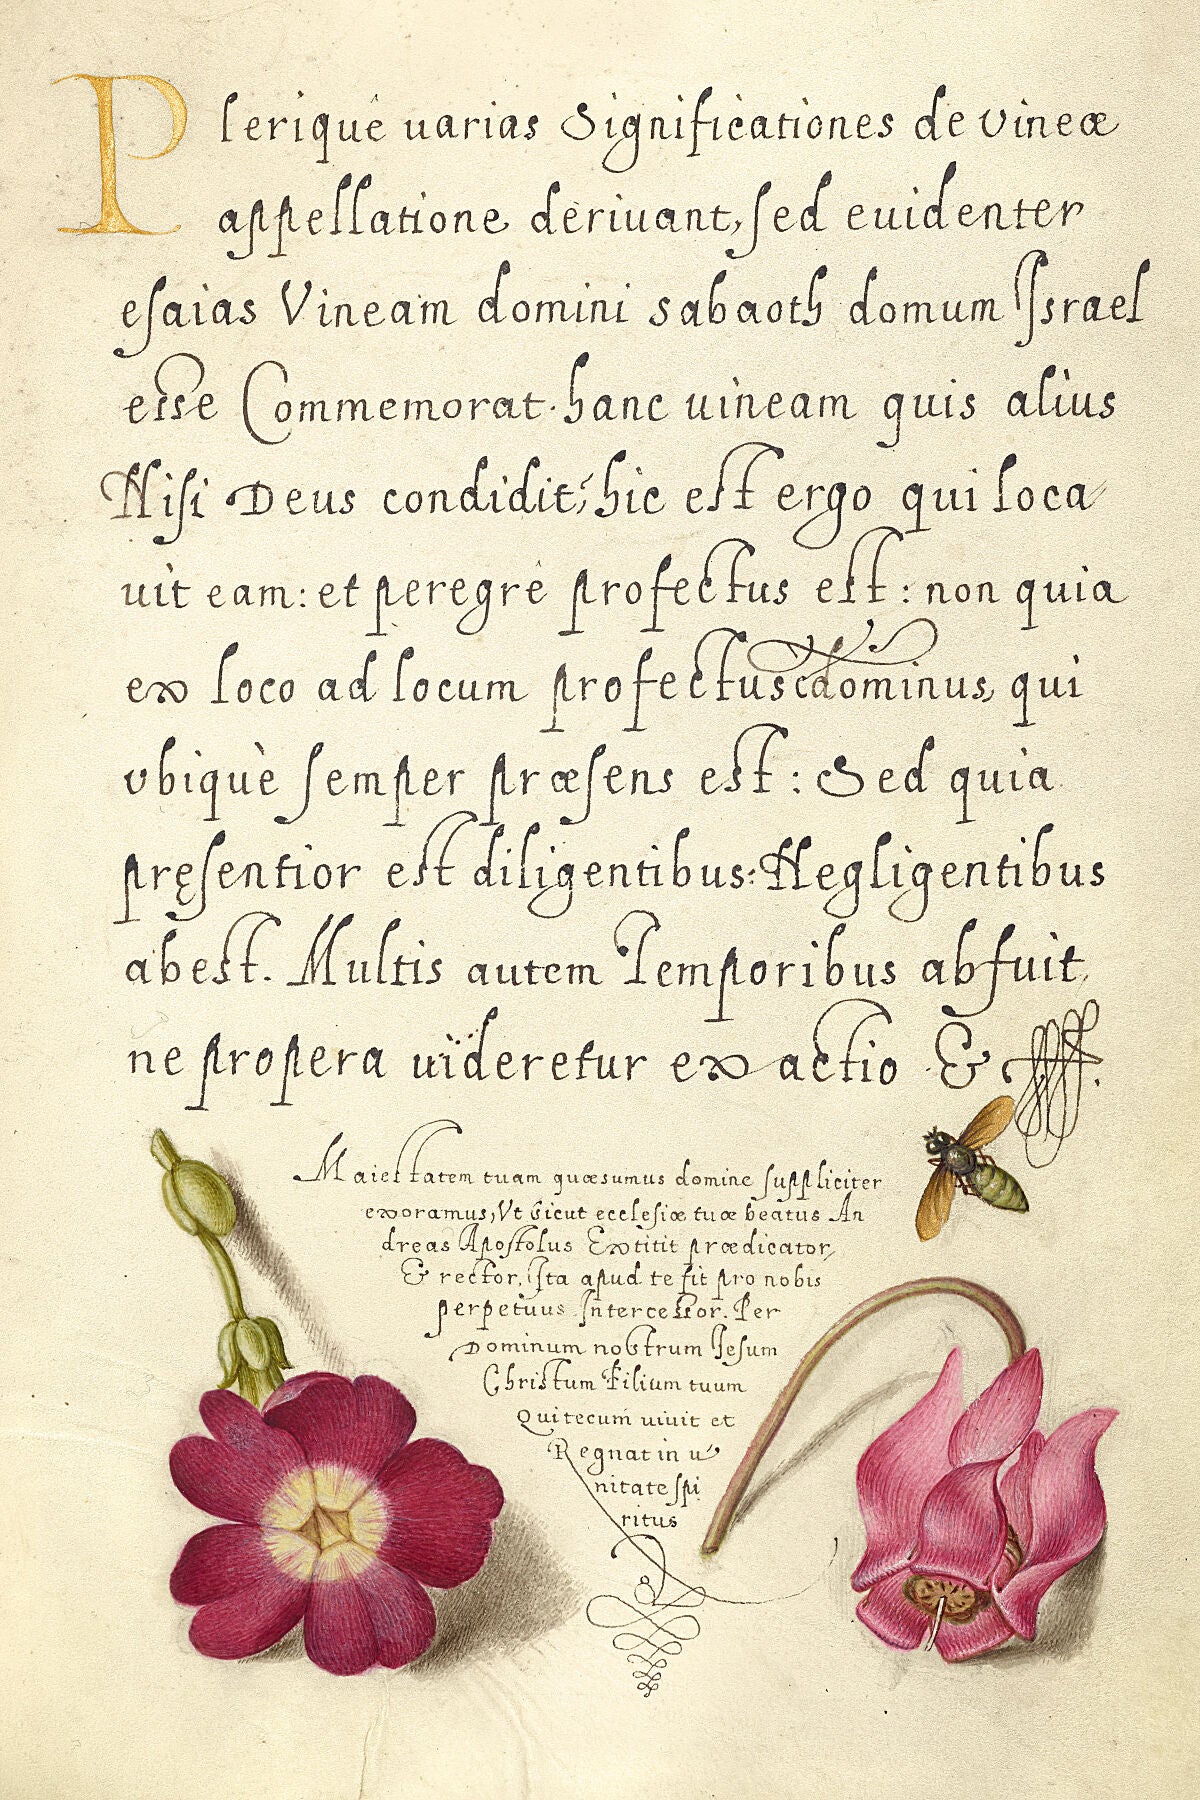 Pleriquè uarias Significationes de vineæ
appellatione deriuant, sed euidenter
esaias Vineam domini sabaoth domum Israel
esse Commemorat. hanc uineam quis alius
Nisi Deus condidit; hic est ergo qui loca
uit eam: et peregrè profectus est: non quia
ex loco ad locum profectus dominus, qui
vbiquè semper præsens est: Sed quia
pręsentior est diligentibus: Negligentibus
abest. Multis autem Temporibus abfuit,
ne propera uïderetur exactio &
Maiestatem tuam quæsumus domine suppliciter
exoramus, Vt sicut ecclesiæ tuæ beatus An
dreas Apostolus Extitit prædicator,
& rector, ista apud te sit pro nobis
perpetuus Intercessor. Per
Dominum nostrum Iesum
Christum Filium tuum
Qui tecum uiuit et
Regnat in u
nitate spi
ritus